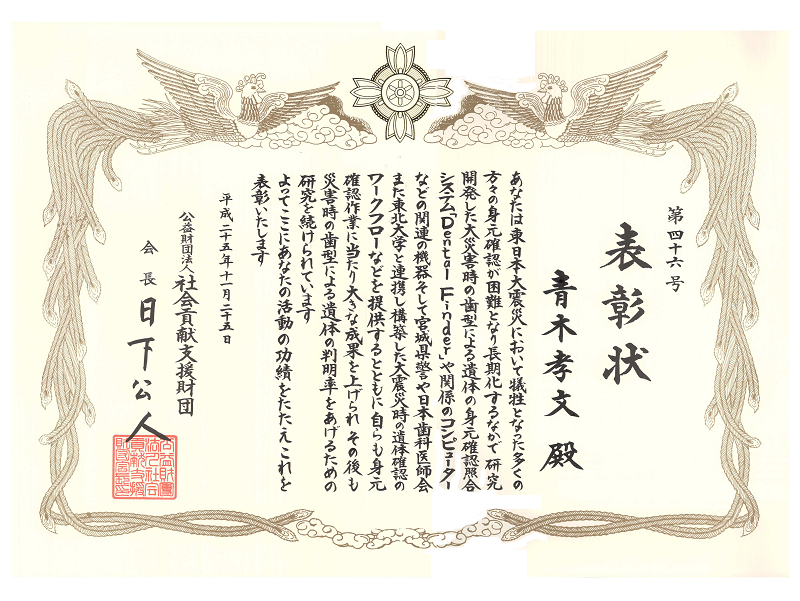 第四十六号
表彰状
青木孝文 殿
あなたは東日本大震災において犠牲となった多くの
方々の身元確認が困難となり長期化するなかで研究
開発した大災害時の歯型による遺体の身元確認照合
システム「Dental Finder」や関係のコンピューター
などの関連の機器そして宮城県警や日本歯科医師会
また東北大学と連携し構築した大震災時の遺体確認の
ワークフローなどを提供するとともに自らも身元
確認作業に当たり大きな成果を上げられ その後も
災害時の歯型による遺体の判明率をあげるための
研究を続けられています
よってここにあなたの活動の功績をたたえ これを
表彰いたします
平成二十五年十一月二十五日
公益財団法人 社会貢献支援財団
会長 日下公人